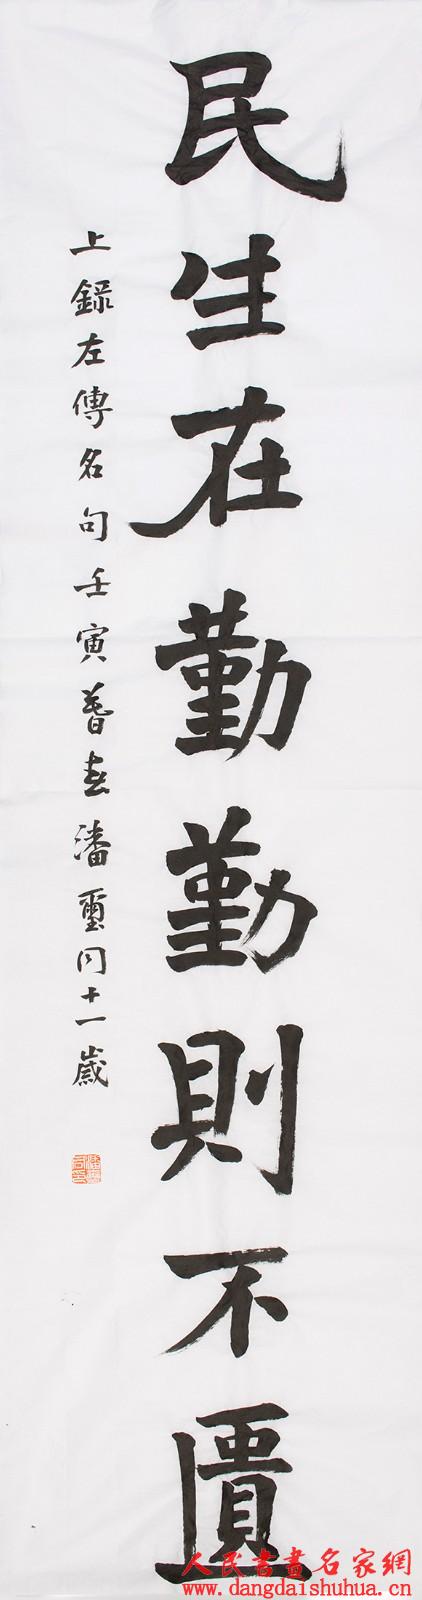 民生在勤勤則不匱
上錄左傳名句壬寅暮春潘璽同十一歲
人民書畫名家網
www.dangdaishuhua.cn